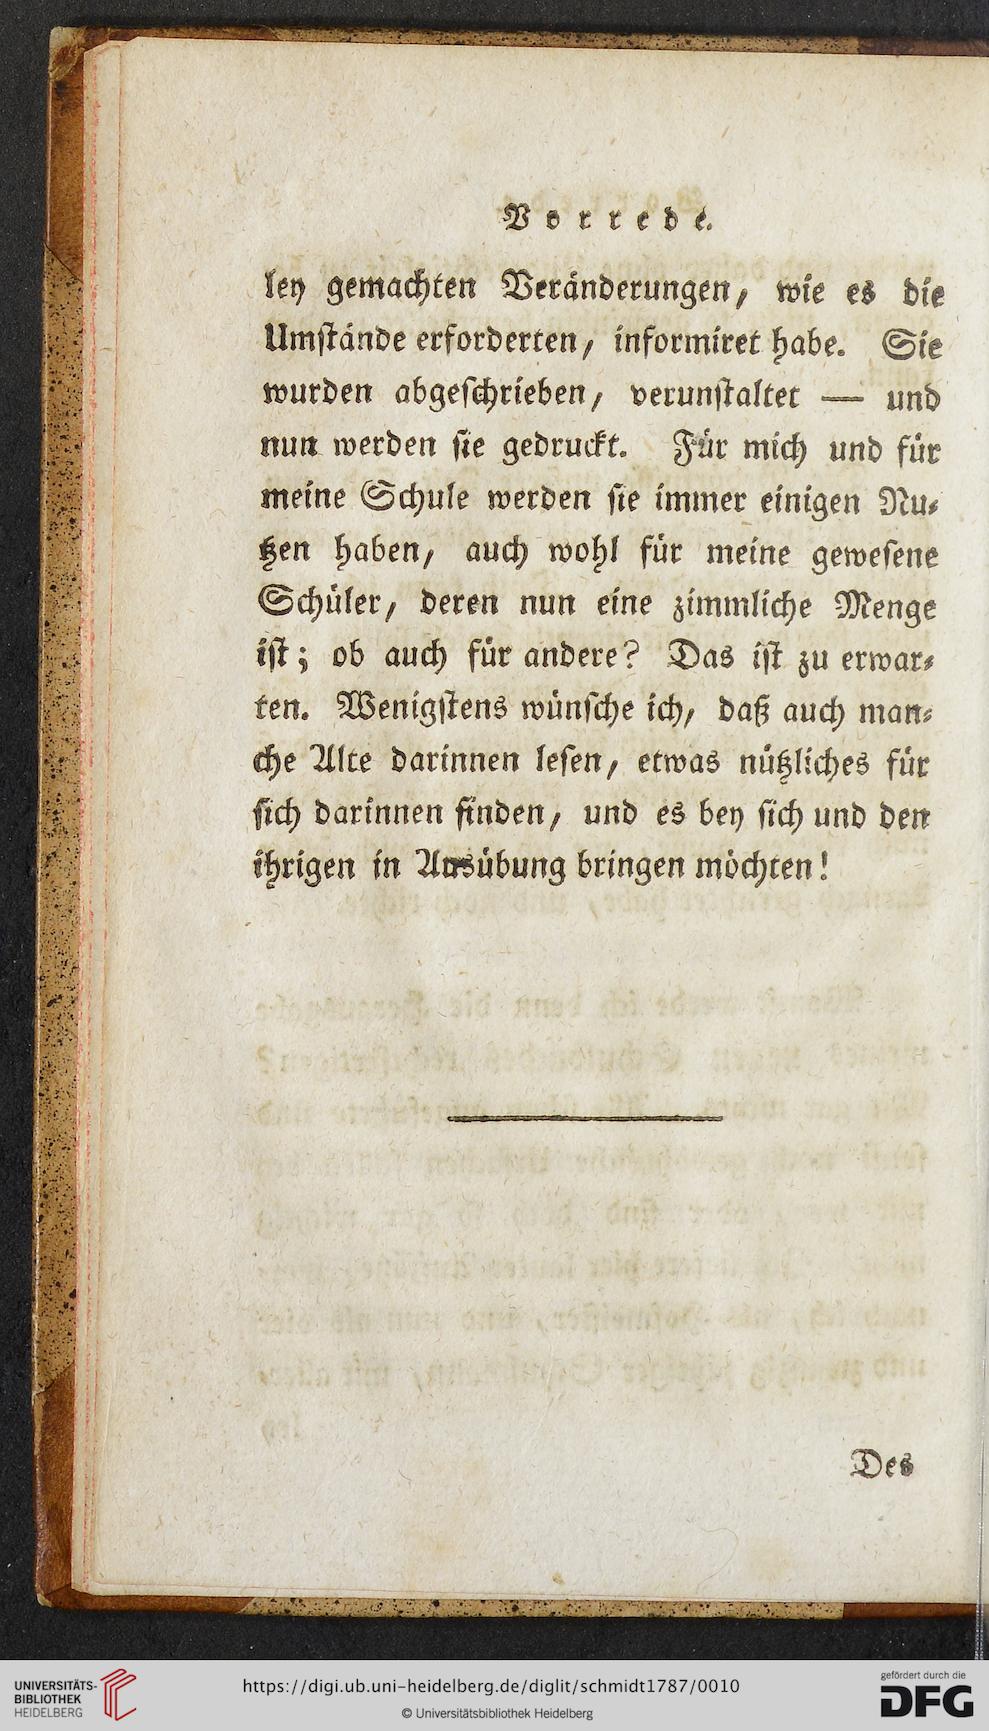 Vorrede.
ley gemachten Veränderungen, wie es die
Umstände erforderten, informiret habe. Sie
wurden abgeschrieben, verunstaltet — und
nun werden sie gedruckt. Für mich und für
meine Schule werden sie immer einigen Nu⸗
tzen haben, auch wohl für meine gewesene
Schüler, deren nun eine zimmliche Menge
ist; ob auch für andere? Das ist zu erwar⸗
ten. Wenigstens wünsche ich, daß auch man⸗
che Alte darinnen lesen, etwas nützliches für
sich darinnen finden, und es bey sich und den
ihrigen in Ausübung bringen möchten!
Des
UNIVERSITÄTS-
BIBLIOTHEK
HEIDELBERG
https://digi.ub.uni-heidelberg.de/diglit/schmidt1787/0010
© Universitätsbibliothek Heidelberg
gefördert durch die
DFG